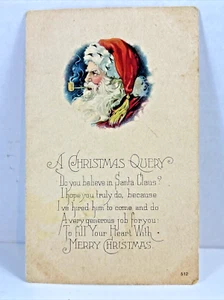 A CHRISTMAS QUERY
Do you believe in Santa Claus?
I hope you truly do, because
I've hired him to come and do
A very generous job for you
To Fill Your Heart With
MERRY CHRISTMAS